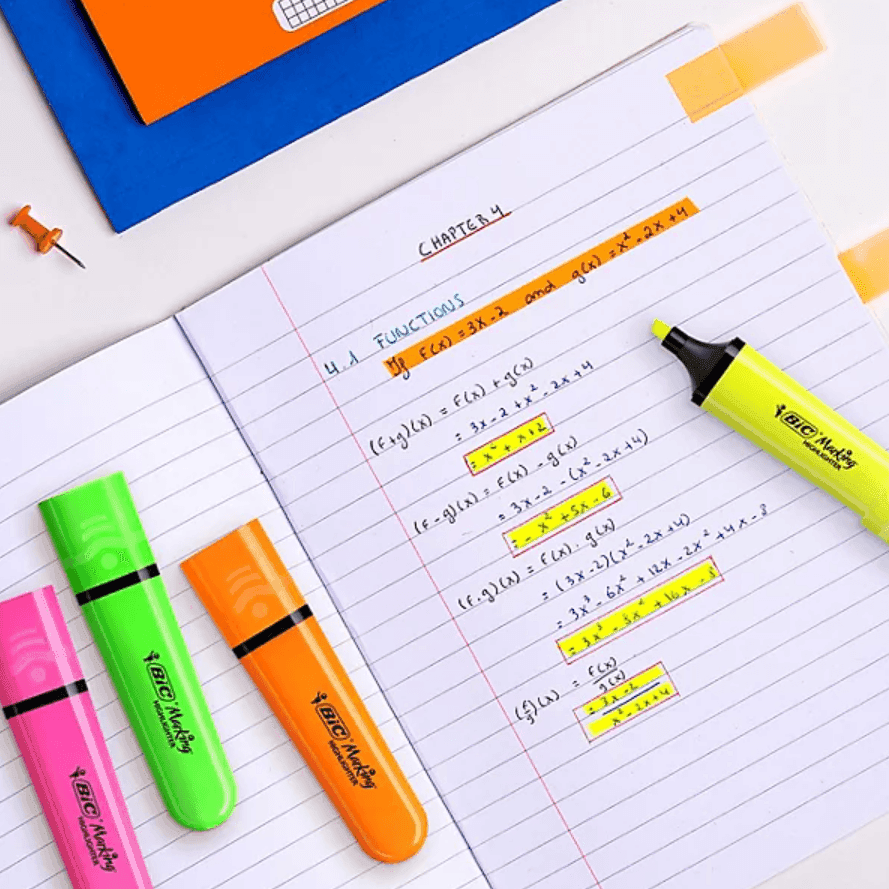 CHAPTER 4
4.1 FUNCTIONS
If f(x) = 3x - 2 and g(x) = x² - 2x + 4
(f+g)(x) = f(x) + g(x)
= 3x - 2 + x² - 2x + 4
= x² + x + 2
(f - g)(x) = f(x) - g(x)
= 3x - 2 - (x² - 2x + 4)
= - x² + 5x - 6
(f . g)(x) = f(x) . g(x)
= (3x - 2)(x² - 2x + 4)
= 3x³ - 6x² + 12x - 2x² + 4x - 8
= 3x³ - 8x² + 16x - 8
(f/g)(x) = f(x)/g(x)
= 3x - 2/x² - 2x + 4
BiC Marking
HIGHLIGHTER
BiC Marking
HIGHLIGHTER
BiC Marking
HIGHLIGHTER
BiC Marking
HIGHLIGHTER